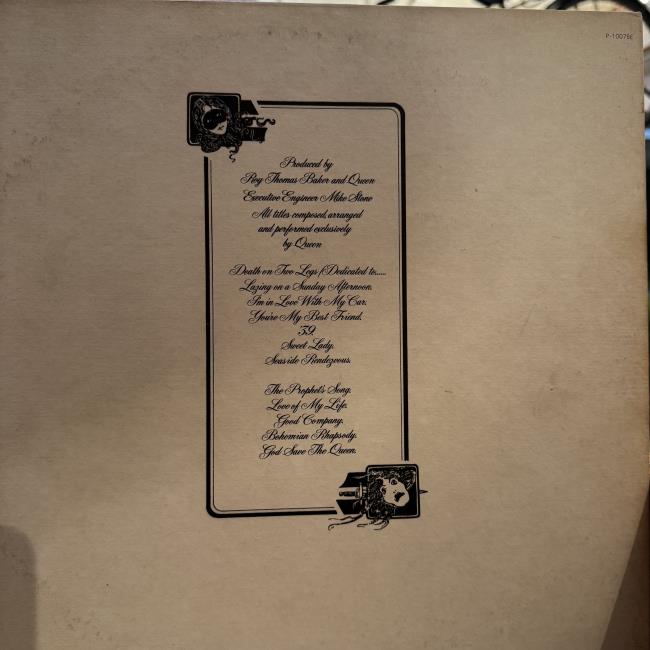 P-10075E
Produced by
Roy Thomas Baker and Queen
Executive Engineer Mike Stone
All titles composed, arranged
and performed exclusively
by Queen
Death on Two Legs (Dedicated to......
Lazing on a Sunday Afternoon.
I'm in Love With My Car.
You're My Best Friend.
'39.
Sweet Lady.
Seaside Rendezvous.
The Prophet's Song.
Love of My Life.
Good Company.
Bohemian Rhapsody.
God Save The Queen.